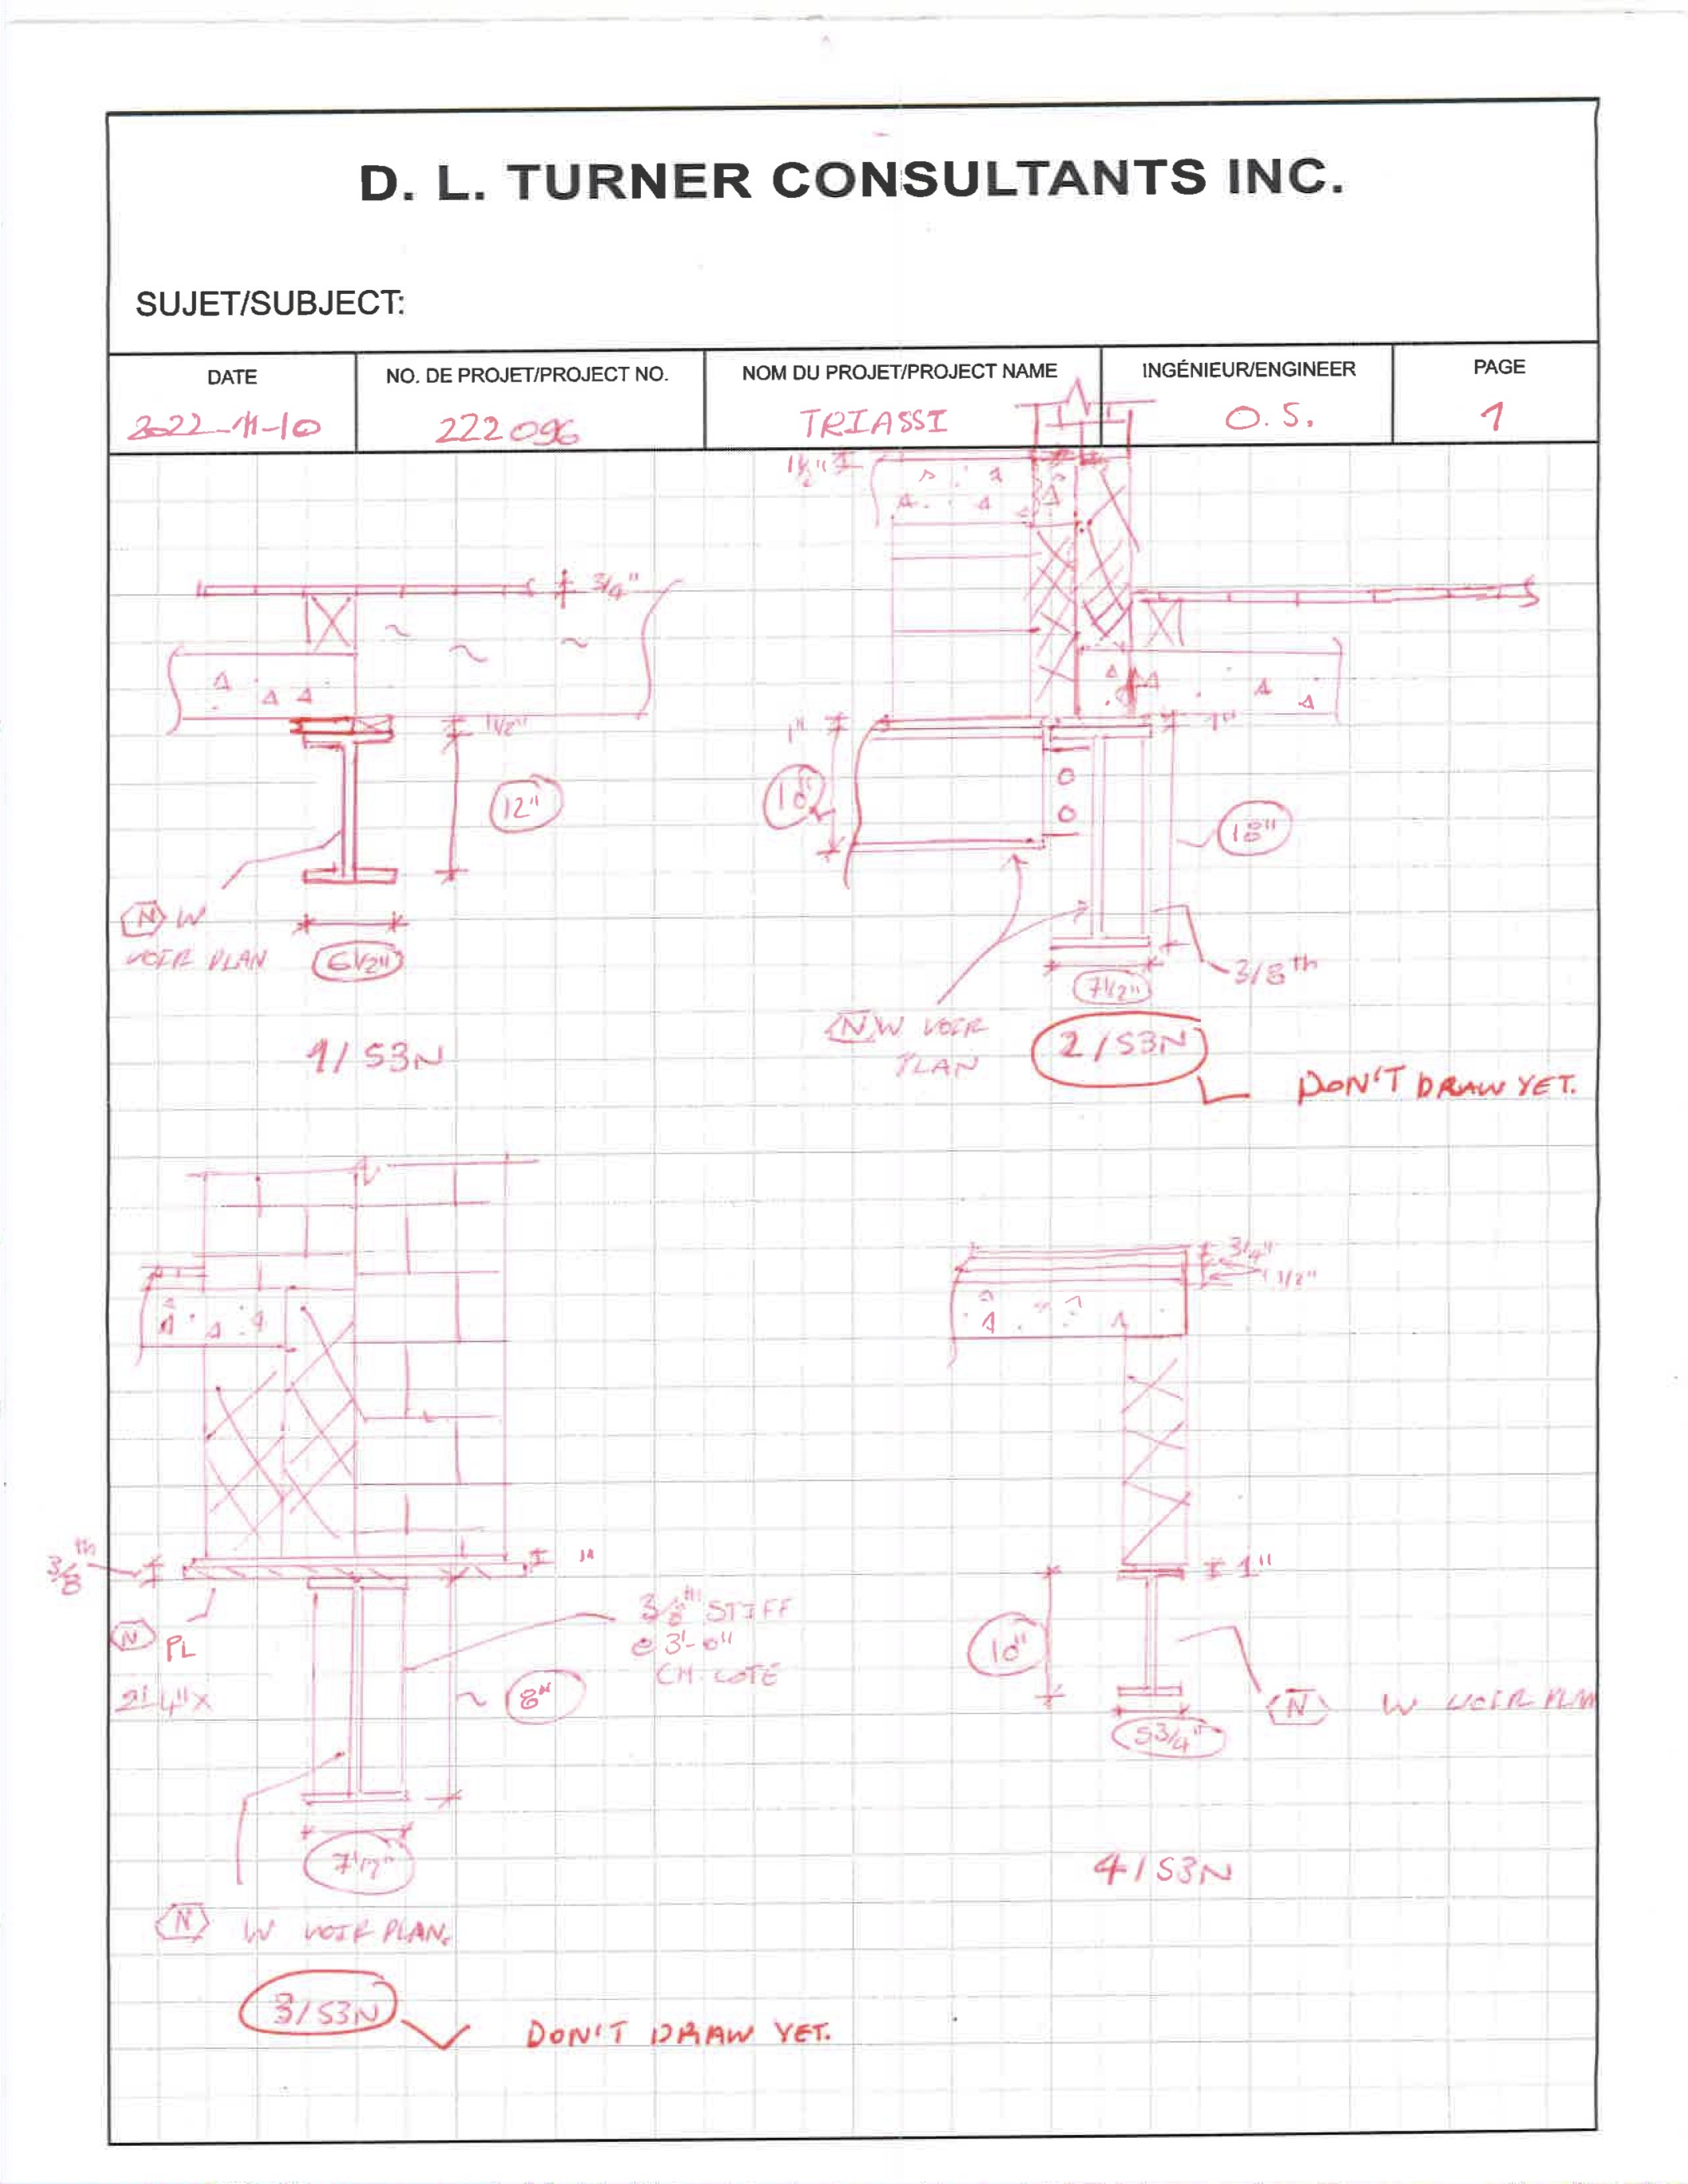 D. L. TURNER CONSULTANTS INC.
SUJET/SUBJECT:
DATE
NO. DE PROJET/PROJECT NO.
NOM DU PROJET/PROJECT NAME
INGÉNIEUR/ENGINEER
PAGE
2022-11-10
222096
TRIASSI
O.S.
1
1½"
3/4"
1½"
12"
N W
VOIR PLAN
6½"
1/S3N
1"
1"
18"
3/8th
7½"
N W VOIR
PLAN
2/S3N
DON'T DRAW YET.
3/8th
N PL
2'-4"x
3/8th STIFF
@ 3'-0"
CH. COTÉ
8"
7½"
N W VOIR PLAN.
3/S3N
DON'T DRAW YET.
3/4"
1½"
1"
10"
5¾"
N W VOIR PLAN
4/S3N